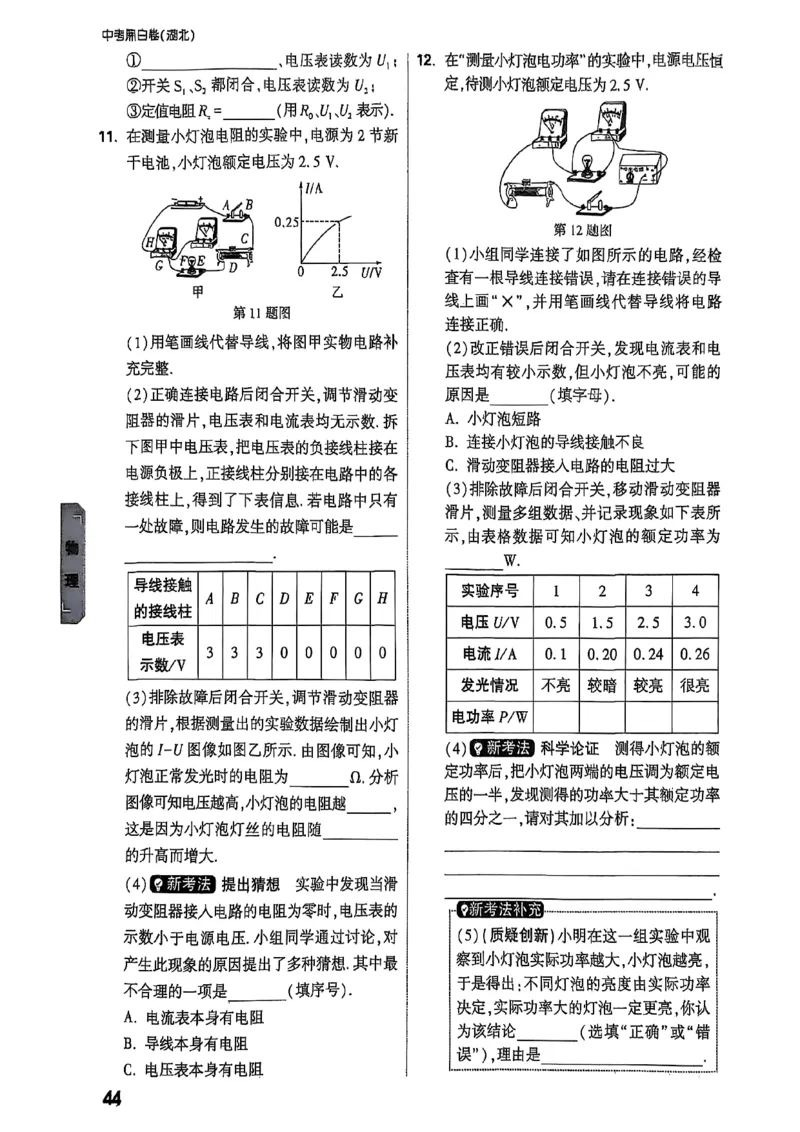 中考黑白卷(湖北)
①____________、电压表读数为 U₁;
②开关 S₁、S₂ 都闭合,电压表读数为 U₂;
③定值电阻 Rₓ = ______(用 R₀、U₁、U₂ 表示).
11. 在测量小灯泡电阻的实验中,电源为 2 节新
干电池,小灯泡额定电压为 2.5 V.
I/A
0.25
0 2.5 U/V
A B
H C
G F E D
甲 乙
第 11 题图
(1)用笔画线代替导线,将图甲实物电路补
充完整.
(2)正确连接电路后闭合开关,调节滑动变
阻器的滑片,电压表和电流表均无示数. 拆
下图甲中电压表,把电压表的负接线柱接在
电源负极上,正接线柱分别接在电路中的各
接线柱上,得到了下表信息. 若电路中只有
一处故障,则电路发生的故障可能是_____
____________.
导线接触的接线柱 A B C D E F G H
电压表示数/V 3 3 3 0 0 0 0 0
(3)排除故障后闭合开关,调节滑动变阻器
的滑片,根据测量出的实验数据绘制出小灯
泡的 I-U 图像如图乙所示. 由图像可知,小
灯泡正常发光时的电阻为______Ω. 分析
图像可知电压越高,小灯泡的电阻越_____,
这是因为小灯泡灯丝的电阻随_______
的升高而增大.
(4) 新考法 提出猜想 实验中发现当滑
动变阻器接入电路的电阻为零时,电压表的
示数小于电源电压. 小组同学通过讨论,对
产生此现象的原因提出了多种猜想. 其中最
不合理的一项是______(填序号).
A. 电流表本身有电阻
B. 导线本身有电阻
C. 电压表本身有电阻
44
物理
12. 在“测量小灯泡电功率”的实验中,电源电压恒
定,待测小灯泡额定电压为 2.5 V.
第 12 题图
(1)小组同学连接了如图所示的电路,经检
查有一根导线连接错误,请在连接错误的导
线上画“×”,并用笔画线代替导线将电路
连接正确.
(2)改正错误后闭合开关,发现电流表和电
压表均有较小示数,但小灯泡不亮,可能的
原因是______(填字母).
A. 小灯泡短路
B. 连接小灯泡的导线接触不良
C. 滑动变阻器接入电路的电阻过大
(3)排除故障后闭合开关,移动滑动变阻器
滑片,测量多组数据、并记录现象如下表所
示,由表格数据可知小灯泡的额定功率为
______W.
实验序号 1 2 3 4
电压 U/V 0.5 1.5 2.5 3.0
电流 I/A 0.1 0.20 0.24 0.26
发光情况 不亮 较暗 较亮 很亮
电功率 P/W
(4) 新考法 科学论证 测得小灯泡的额
定功率后,把小灯泡两端的电压调为额定电
压的一半,发现测得的功率大于其额定功率
的四分之一,请对其加以分析:________
____________
____________
____________.
新考法补充
(5)(质疑创新)小明在这一组实验中观
察到小灯泡实际功率越大,小灯泡越亮,
于是得出:不同灯泡的亮度由实际功率
决定,实际功率大的灯泡一定更亮,你认
为该结论______(选填“正确”或“错
误”),理由是____________.